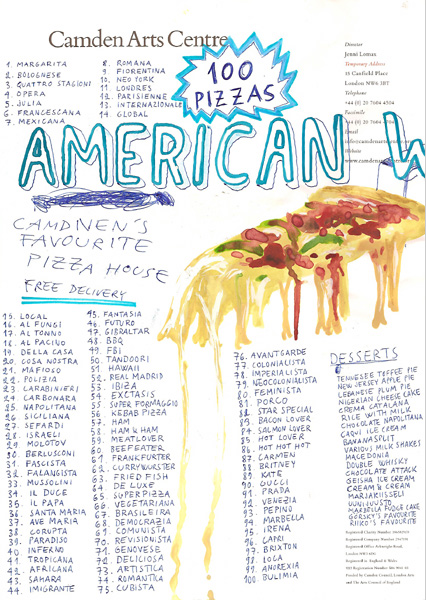 Camden Arts Centre
Director
Jenni Lomax
Temporary Address
Camden Arts Centre
London NW6
Telephone
+44 (0) 20 7604 4504
Facsimile
+44 (0) 20 7604
Email
Website
100
PIZZAS
1. MARGARITA
2. BOLOGNESE
3. QUATTRO STAGIONI
4. OPERA
5. JULIA
6. FRANCESCANA
7. MEXICANA
8. ROMANA
9. FIORENTINA
10. NEW YORK
11. LONDRES
12. PARISIENNE
13. INTERNAZIONALE
14. GLOBAL
AMERICAN H
CAMDNEN'S
FAVOURITE
PIZZA HOUSE
FREE DELIVERY
15. LOCAL
16. AL FUNGI
17. AL TONNO
18. AL PACINO
19. DELLA CASA
20. COSA NOSTRA
21. MAFIOSO
22. POLIZIA
23. CARABINIERI
24. CARBONARA
25. NAPOLITANA
26. SICILIANA
27. SEFARDI
28. ISRAELI
29. MOLOTOV
30. BERLUSCONI
31. FASCISTA
32. FALANGISTA
33. MUSSOLINI
34. IL DUCE
35. IL PAPA
36. SANTA MARIA
37. AVE MARIA
38. CORUPTA
39. PARADISO
40. INFERNO
41. TROPICANA
42. AFRICANA
43. SAHARA
44. IMIGRANTE
45. FANTASIA
46. FUTURO
47. GIBRALTAR
48. BBQ
49. FBI
50. TANDOORI
51. HAWAII
52. REAL MADRID
53. IBIZA
54. EXCTASIS
55. SUPER FORMAGGIO
56. KEBAB PIZZA
57. HAM
58. HAM & HAM
59. MEATLOVER
60. BEEFEATER
61. FRANKFURTER
62. CURRYWURSTER
63. FRIED FISH
64. DE LUXE
65. SUPER PIZZA
66. VEGETARIANA
67. BRASILEIRA
68. DEMOCRAZIA
69. COMUNISTA
70. REVISIONISTA
71. GENOVESE
72. DELICIOSA
73. ARTISTICA
74. ROMANTICA
75. CUBISTA
76. AVANTGARDE
77. COLONIALISTA
78. IMPERIALISTA
79. NEOCOLONIALISTA
80. FEMINISTA
81. PORCO
82. STAR SPECIAL
83. BACON LOVER
84. SALMON LOVER
85. HOT LOVER
86. HOT HOT HOT
87. CARMEN
88. BRITNEY
89. KATE
90. GUCCI
91. PRADA
92. VENEZIA
93. PEPINO
94. MARBELLA
95. IRENA
96. CAPRI
97. BRIXTON
98. LOCA
99. ANOREXIA
100 BULIMIA
DESSERTS
TENNESSEE TOFFEE PIE
NEW JERSEY APPLE PIE
LEBANESE PLUM PIE
NIGERIAN CHEESE CAKE
CREMA CATALANA
RICE WITH MILK
CHOCOLATE NAPOLITANA
CAQUI ICE CREAM
BANANASPLIT
VARIOUS MILK SHAKES
MACEDONIA
DOUBLE WHISKY
CHOCOLATE ATTACK
GEISHA ICE CREAM
CREAM & CREAM
MARBELLA FUDGE CAKE
GORSKY'S FAVOURITE
RIIKO'S FAVOURITE
Registered Charity Number
Registered Company Number
Registered Office Arkwright Road,
London NW3 6DG
Registered in England & Wales
VAT Registration Number
Funded by Camden Council, London Arts
and The Arts Council of England